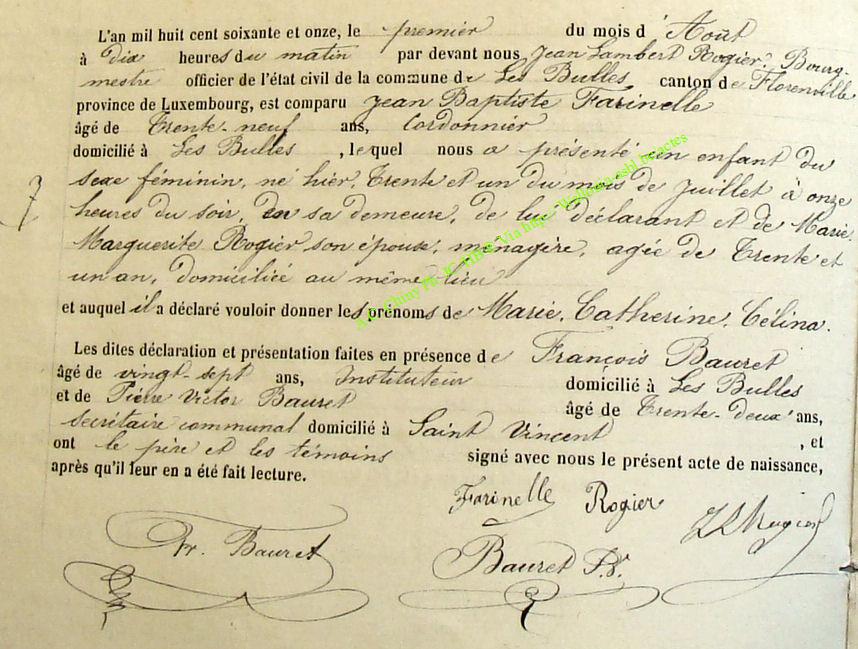 L'an mil huit cent soixante et onze, le premier du mois d' Août
à dix heures du matin par devant nous Jean Lambert Rogier, Bourg-
mestre officier de l'état civil de la commune de Les Bulles canton de Florenville
province de Luxembourg, est comparu Jean Baptiste Farinelle
âgé de trente-neuf ans, Cordonnier
domicilié à Les Bulles , lequel nous a présenté un enfant du
sexe féminin, né hier, trente et un du mois de Juillet à onze
7
heures du soir, en sa demeure, de lui déclarant et de Marie
Marguerite Rogier son épouse, ménagère, agée de trente et
un an, domiciliée au même lieu
et auquel il a déclaré vouloir donner les prénoms de Marie, Catherine, Célina.
Les dites déclaration et présentation faites en présence de François Bauret
âgé de vingt-sept ans, Instituteur domicilié à Les Bulles
et de Pierre Victor Bauret âgé de trente-deux ans,
secrétaire communal domicilié à Saint Vincent , et
ont le père et les témoins signé avec nous le présent acte de naissance,
après qu'il leur en a été fait lecture.
Farinelle Rogier
Fr. Bauret Bauret